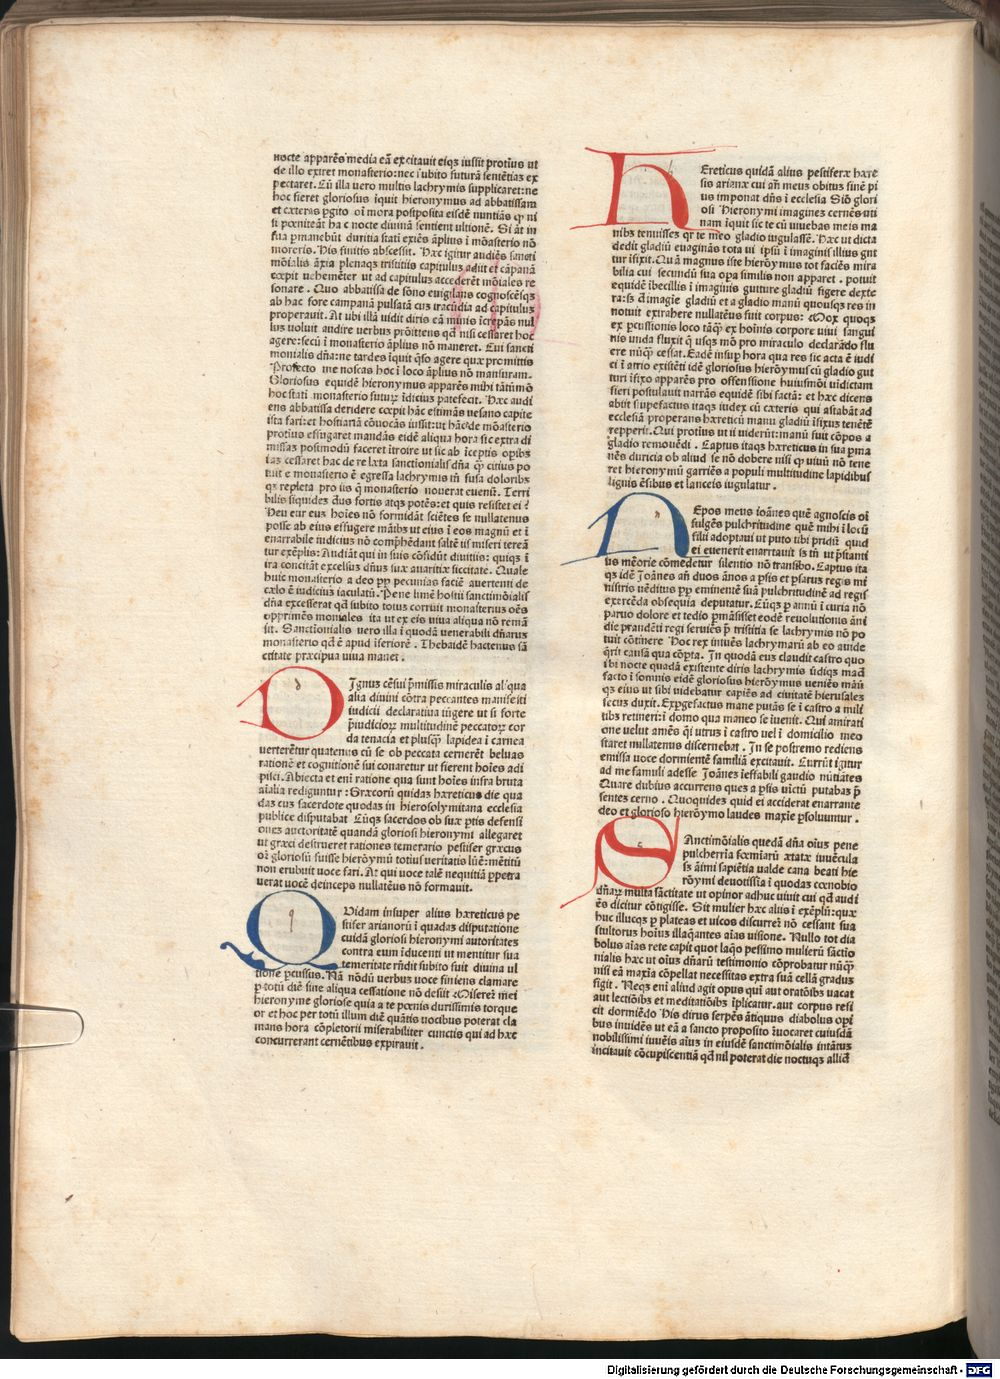 nocte apparēs media eā excitauit eiqꝫ iussit protīus ut
de illo exiret monasterio: nec iubito futurā sentētias ex
pectaret. Cū illa uero multis lachrymis supplicaret: ne
hoc fieret gloriosus īquit hieronymus ad abbatissam
et cæteras ꝑgito oī mora postposita eisdē nuntiās qꝫ ni
si pœniteāt hac nocte diuinā sentient ultionē. Si āt in
sua ꝑmanebūt duritia stati exiēs āplius ī mōasterio nō
moreris. His finitis abscessit. Hæc igitur audiēs sancti
mōialis āxia plenaqꝫ tristitiis capitulus adiit et cāpanā
cœpit uehemēter ut ad capitulus accederēt mōiales re
sonare. Quo abbatissa de sōno euigilans cognoscēsqꝫ
ab hac fore campanā pulsatā cus iracūdia ad capitulus
properauit. At ubi illā uidit diris eā minis īcrepās nul
lus uoluit audire uerbus prōittens qđ nisi cessaret hoc
agere: secū ī monasterio āplius nō maneret. Cui sancti
monialis dn̄a: ne tardes īquit q̄so agere quæ promittis
Profecto me noscas hoc ī loco āplius nō mansuram.
Gloriosus equidē hieronymus apparēs mihi tātūmō
hoc stati monasterio futuꝝ īdicius patefecit. Hæc audi
ens abbatissa deridere cœpit hāc estimās uesano capite
ista fari: et hostiariā cōuocās iussit: ut hāc de mōasterio
protīus effugaret mandās eidē aliqua hora sic extra di
missas postmodū faceret itroire ut sic ab īceptis opibꝫ
ias cessaret hac de re læta sanctionialis dn̄a q̄ citius po
tuit e monasterio ē egressa lachrymis in̄ fusa doloribꝫ
qꝫ repleta pro iis q̄ monasterio nouerat euenū. Terri
bilis siquidez dn̄s fortis atqꝫ potēs: et quis resistet ei?
Heu eur eus hoīes nō formidāt sciētes se nullatenus
posse ab eius effugere māibꝫ ut eius ī eos magnū et ī
enarrabile iudicius nō comp̄hēdant saltē iis miseri tereā
tur exēplis: Audiāt qui in suis cōfidūt diuitiis: quiqꝫ ī
ira concitāt excelsus dn̄us suæ auaritiæ siccitate. Quale
huic monasterio a deo ꝓp̄ pecunias faciē auertenti de
cælo ē iudicius iaculatū. Pene limē hostii sanctimōialis
dn̄a excesserat qđ subito totus corruit monasterius oēs
opprimēs moniales ita ut ex eis uiua aliqua nō remā
sit. Sanctionialis uero illa ī quodā uenerabili dn̄arus
monasterio qđ ē apud īferiorē. Thebaidē hactenus sā
ctitate præcipua uiua manet.
DIgnus cēsui p̄missis miraculis al'qua
alia diuini cōtra peccantes manifesti
iudicii declaratiua iūgere ut si forte
p̄iudicioꝝ multitudinē peccatoꝝ cor
da tenacia et plusq̄ lapidea ī carnea
uerterētur quatenus cū se ob peccata cernerēt beluas
rationē et cognitionē sui conaretur ut fierent hoīes adi
pisci. Abiecta et eni ratione qua sunt hoīes infra bruta
aīalia rediguntur: Græcorū quidas hæreticus die qua
das cus sacerdote quodas in hierosolymitana ecclesia
publice disputabat Cūqꝫ sacerdos ob suæ ꝑtis defensi
ones auctoritatē quandā gloriosi hieronymi allegaret
ut græci destrueret rationes temerario pestifer græcus
oī gloriosū fuisse hierōymū totius ueritatis lūē: mētitū
non erubuit uoce fari. At qui uoce tale nequitiā ꝑpetra
uerat uocē deinceps nullatēus nō formauit.
QVidam insuper alius hæreticus pe
stifer arianorū ī quadas disputatione
cuidā gloriosi hieronymi autoritates
contra eum īducenti ut mentitur sua
temeritate rn̄dit subito fuit diuina ul
tione ꝑcussus. Nā nōdū uerbus uoce finiens clamare
ꝑ totū diē sine aliqua cessatione nō desiit Miserer̄ mei
hieronyme gloriose quia a te pœnis durissimis torque
or et hoc per totū illum diē quātis uocibus poterat cla
mans hora cōpletorii miserabiliter cunctis qui ad hæc
concurrerant cernētibus expirauit.
HEreticus quidā alius pestiferæ hære
sis arianæ cui an̄ meus obitus finē pi
us imponat dn̄s ī ecclesia Siō glori
osi Hieronymi imagines cernēs uti
nam īquit sic te cū uiuebas meis ma
nibꝫ tenuissez qr̄ te meo gladio iugulassē. Hæc ut dicta
dedit gladiū euaginās tota ui ipsū ī imaginis illius gut
tur īfixit. Quā magnus iste hierōymus tot faciēs mira
bilia cui secundū sua opa similis non apparet. potuit
equidē ībecillis ī imaginis gutture gladiū figere dexte
ra: sꝫ đ imagīe gladiū et a gladio manū quousqꝫ res in
notuit extrahere nullatēus fuit corpus: Mox quoqꝫ
ex ꝑcussionis loco tāq̄ ex hoīnis corpore uiui sangui
nis unda fluxit q̄ usqꝫ mō pro miraculo declarādo flu
ere nūq̄ cessat. Eadē insup hora qua res sic acta ē iudi
ci ī atrio existēti idē gloriosus hierōymus cū gladio gut
turi īfixo apparēs pro offensione huiusmōi uidictam
fieri postulauit narrās equidē sibi factā: et hæc dicens
abiit stupefactus itaqꝫ iudex cū cæteris qui astabāt ad
ecclesiā properans hæreticū manu gladiū īfixus tenētē
repperit. Qui protīus ut ii uiderūt: manū suit cōpos a
gladio remouēdi. Captus itaqꝫ hæreticus in sua ꝑma
nēs duricia ob aliud se nō dobere nisi qꝫ uiuū nō tene
ret hieronymū garriēs a populi multitudine lapidibus
lignis ēsibus et lanceis iugulatur.
NEpos meus ioānes quē agnoscis oī
fulgēs pulchritudine quē mihi ī locū
filii adoptaui ut puto tibi pridiū quid
ei euenerit enarrauit sꝫ in̄ ut p̄stanti
us mēorie cōmedetur silentio nō transibo. Captus ita
qꝫ idē Joānes an̄ duos ānos a ꝑsis et ꝑsarus regis mi
nistris uēditus ꝓp̄ eminentē suā pulchritudinē ad regis
exercēda obsequia deputatur. Cūqꝫ ꝑ annū ī curia nō
paruo dolore et tedio ꝑmāsisset eodē reuolutionis āni
die prandēti regi seruiēs p̄ tristitia se lachrymis nō po
tuit cōtinere Hoc rex inuēs lachrymarū ab eo auide
q̄rit causā qua cōpta. In quodā eus claudit castro quo
ibi nocte quadā existente diris lachrymis ūdiqꝫ mađ
facto ī somnis eidē gloriosus hierōymus ueniēs māū
qꝫ eius ut sibi uidebatur capiēs ad ciuitatē hierusalez
secus duxit. Expgefactus mane putās se ī castro a mili
tibꝫ retineri: ī domo qua maneo se īuenit. Qui amirati
one uelut amēs q̄i utrus ī castro uel ī domicilio meo
staret nullatenus discernebat. In se postremo rediens
emissa uoce dormientē familiā excitauit. Currūt igitur
ad me famuli adesse Joānes īeffabili gaudio nūtiātes
Quare dubius accurrens ques a ꝑsis uīctū putabas p̄
sentes cerno. Quoquidez quid ei acciderat enarrante
deo et glorioso hierōymo laudes maxīe ꝑsoluuntur.
SAnctimōialis quedā dn̄a oīus pene
pulcherrīa fœmiarū ætatæ iuuēcula
sꝫ āīmi sapiētia ualde cana beati hie
rōymi deuotissīa ī quodas cœnobio
dn̄aꝝ multa sāctitate ut opinor adhuc uiuit cui qđ audi
ēs dicitur cōtigisse. Sit mulier hæc aliis ī exēplū: quæ
huc illucqꝫ ꝑ plateas et uicos discurrer̄ nō cessant sua
stultorus hoīus illaq̄antes aīas uisione. Nullo tot dia
bolus aīas rete capit quot laq̄o pessimo mulierū sāctio
nialis hæc ut oīus dn̄arū testimonio cōprobatur nūq̄
nisi eā maxīa cōpellat necessitas extra suā cellā gradus
figit. Neqꝫ eni aliud agit opus quī aut oratōibꝫ uacat
aut lectiōibꝫ et meditatiōibꝫ īplicatur. aut corpus resi
cit dormiēdo His dirus serpēs ātiquus diabolus opi
bus inuidēs ut eā a sancto proposito āuocaret cuiusdā
nobilissimi iuuēis aīus in eiusdē sanctimōialis intātus
incitauit cōcupiscentiā qđ nil poterat die noctuqꝫ aliđ
Digitalisierung gefördert durch die Deutsche Forschungsgemeinschaft - DFG